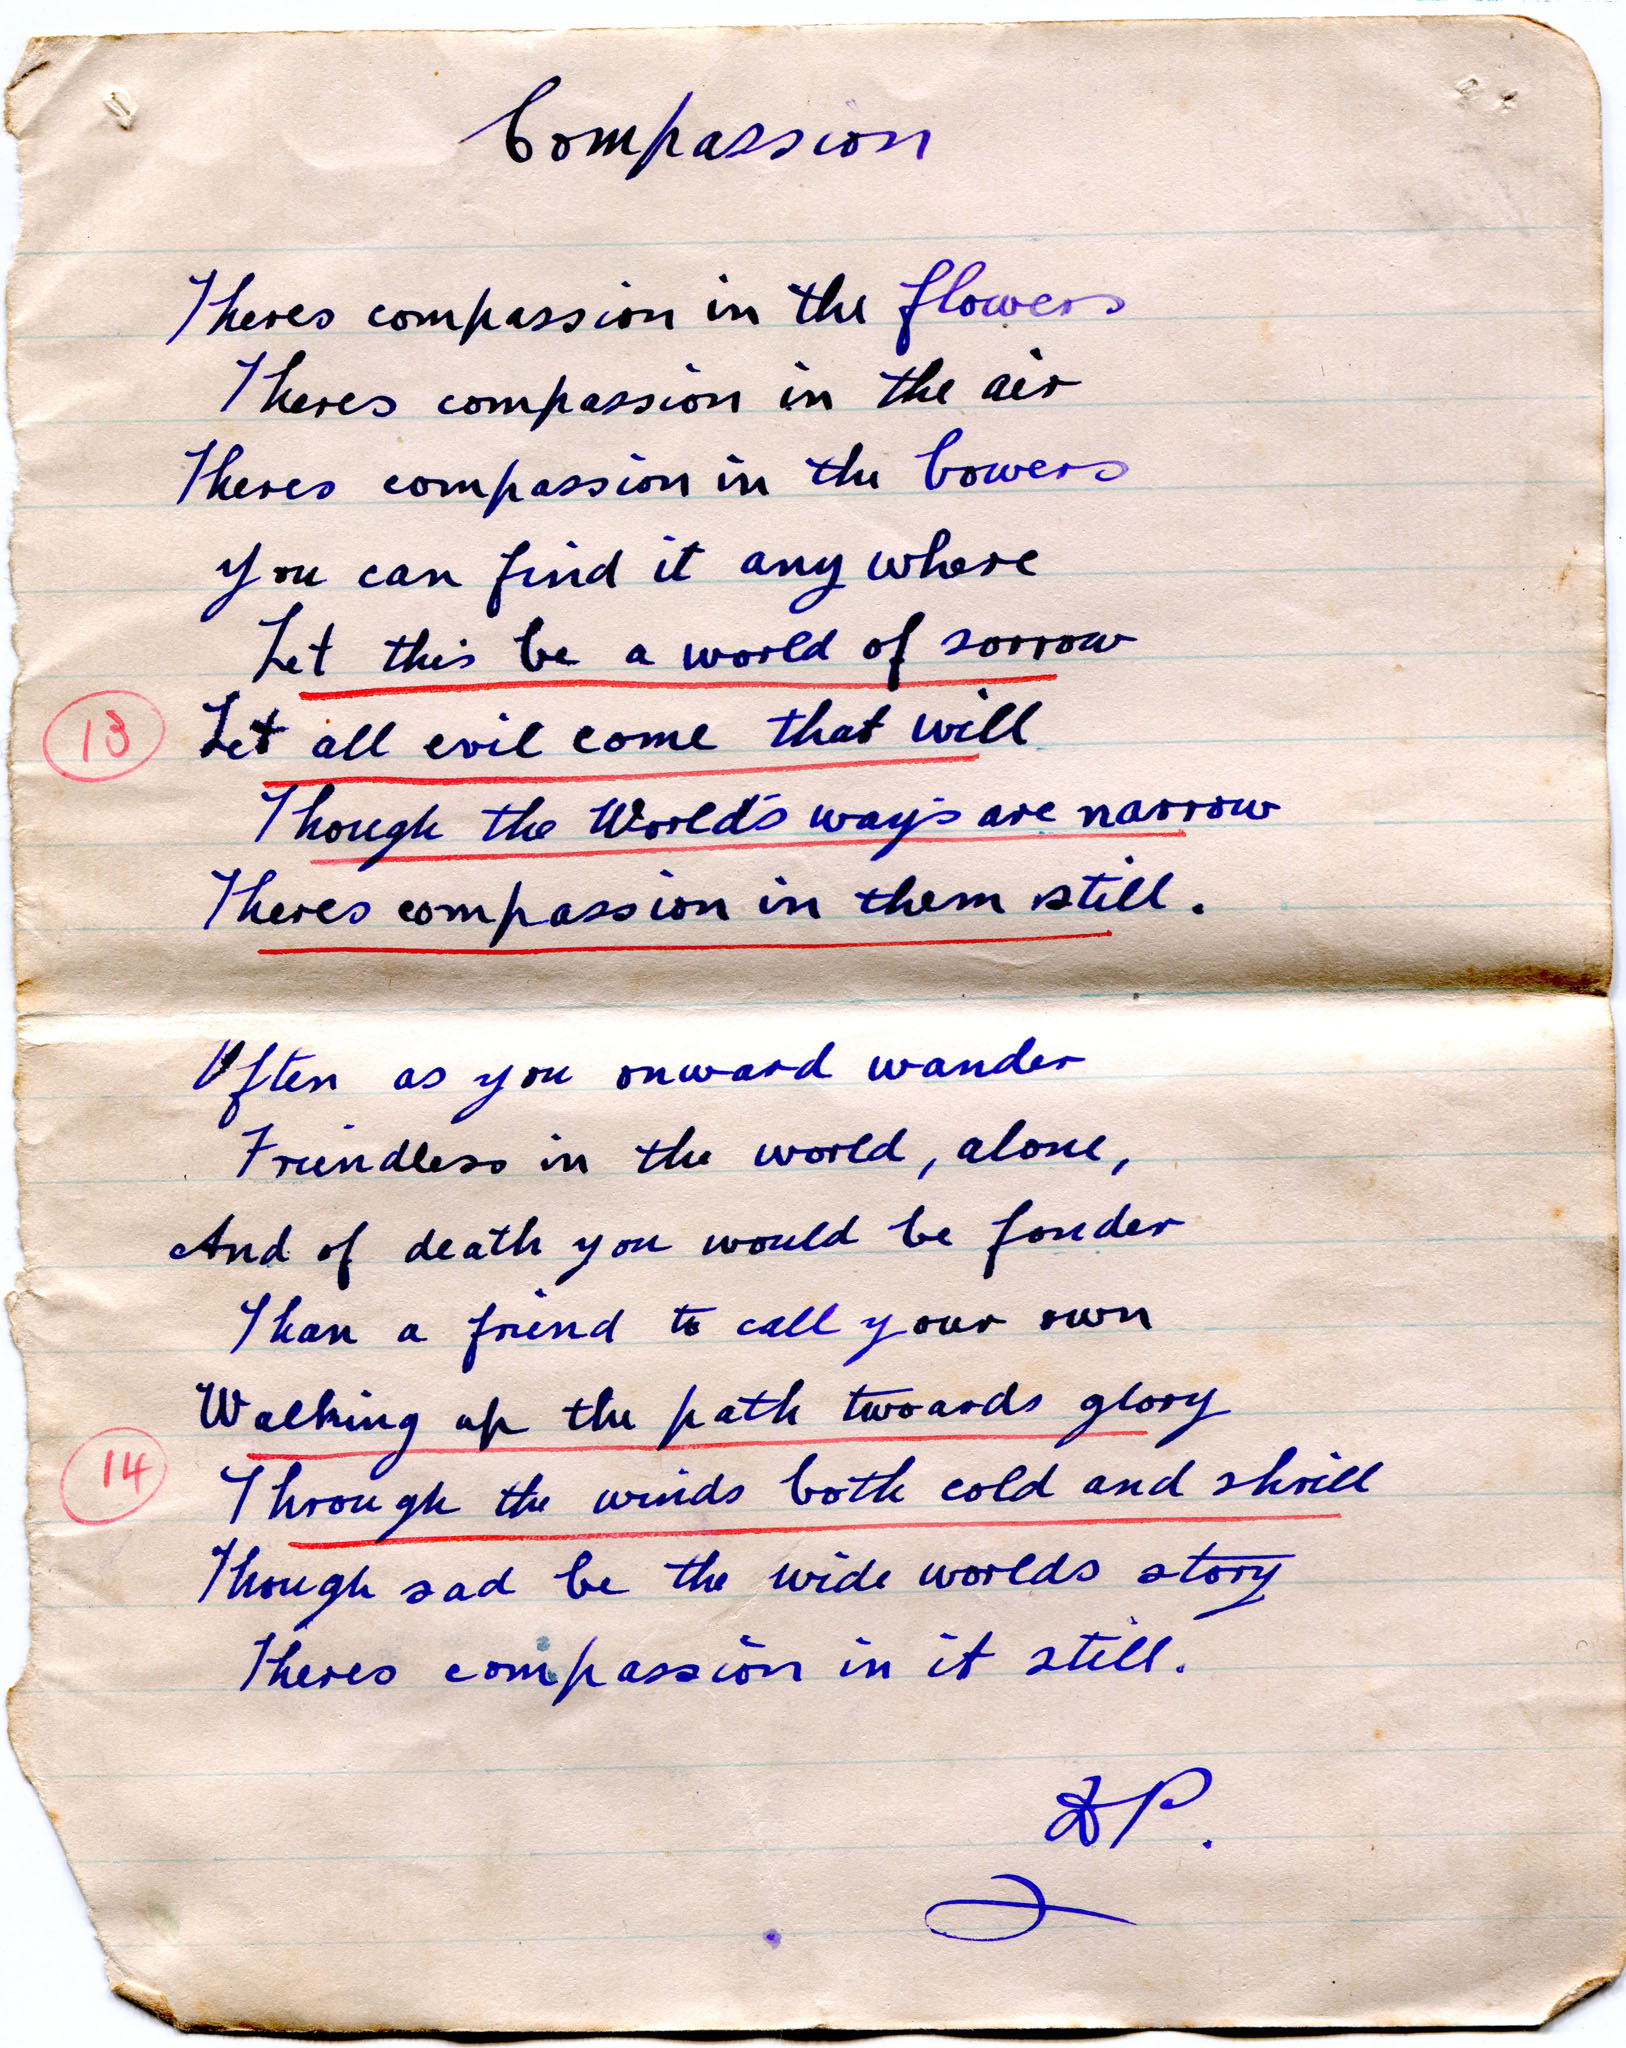 Compassion
Theres compassion in the flowers
Theres compassion in the air
Theres compassion in the bowers
You can find it any where
Let this be a world of sorrow
13
Let all evil come that will
Though the World's ways are narrow
Theres compassion in them still.
Often as you onward wander
Friendless in the world, alone,
And of death you would be fonder
Than a friend to call your own
Walking up the path twoards glory
14
Through the winds both cold and shrill
Though sad be the wide worlds story
Theres compassion in it still.
P.